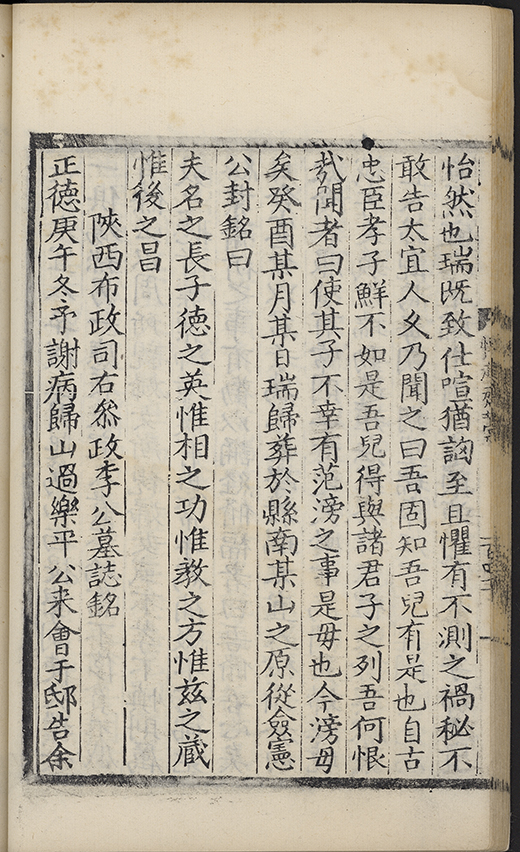 怡然也瑞既致仕喧猶訩至且懼有不測之禍秘不
敢告太宜人久乃聞之曰吾固知吾兒有是也自古
忠臣孝子鮮不如是吾兒得與諸君子之列吾何恨
㢤聞者曰使其子不幸有范滂之事是毋也今滂毋
矣癸酉某月某日瑞歸葬於縣南某山之原從僉憲
公封銘曰
夫名之長子徳之英惟相之功惟教之方惟兹之蔵
惟後之昌
陝西布政司右叅政李公墓誌銘
正徳庚午冬予謝病歸山過樂平公来會于邸告余